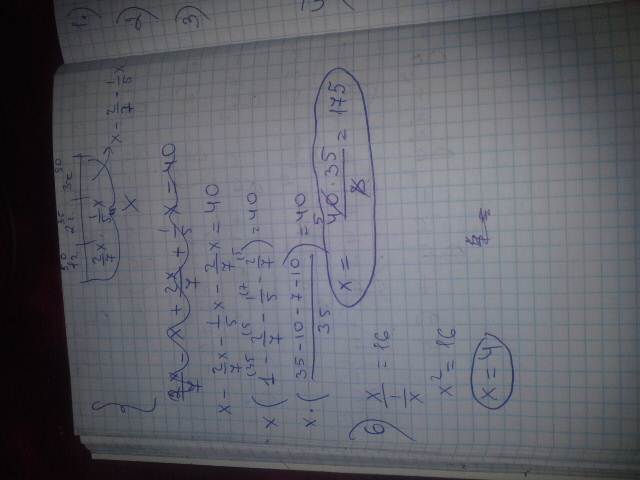 1.)
2)
3)
2/7 x 1/5 x
x - 2/7 - 1/5 x
x
x - 2/7 x - 1/5 x - 2/7 x = 40
x ( 1 - 2/7 - 1/5 - 2/7 ) = 40
x · ( 35 - 10 - 7 - 10 / 35 ) = 40
x = 40 · 35 / 8 = 175
6) x / 1/x = 16
x² = 16
x = 4